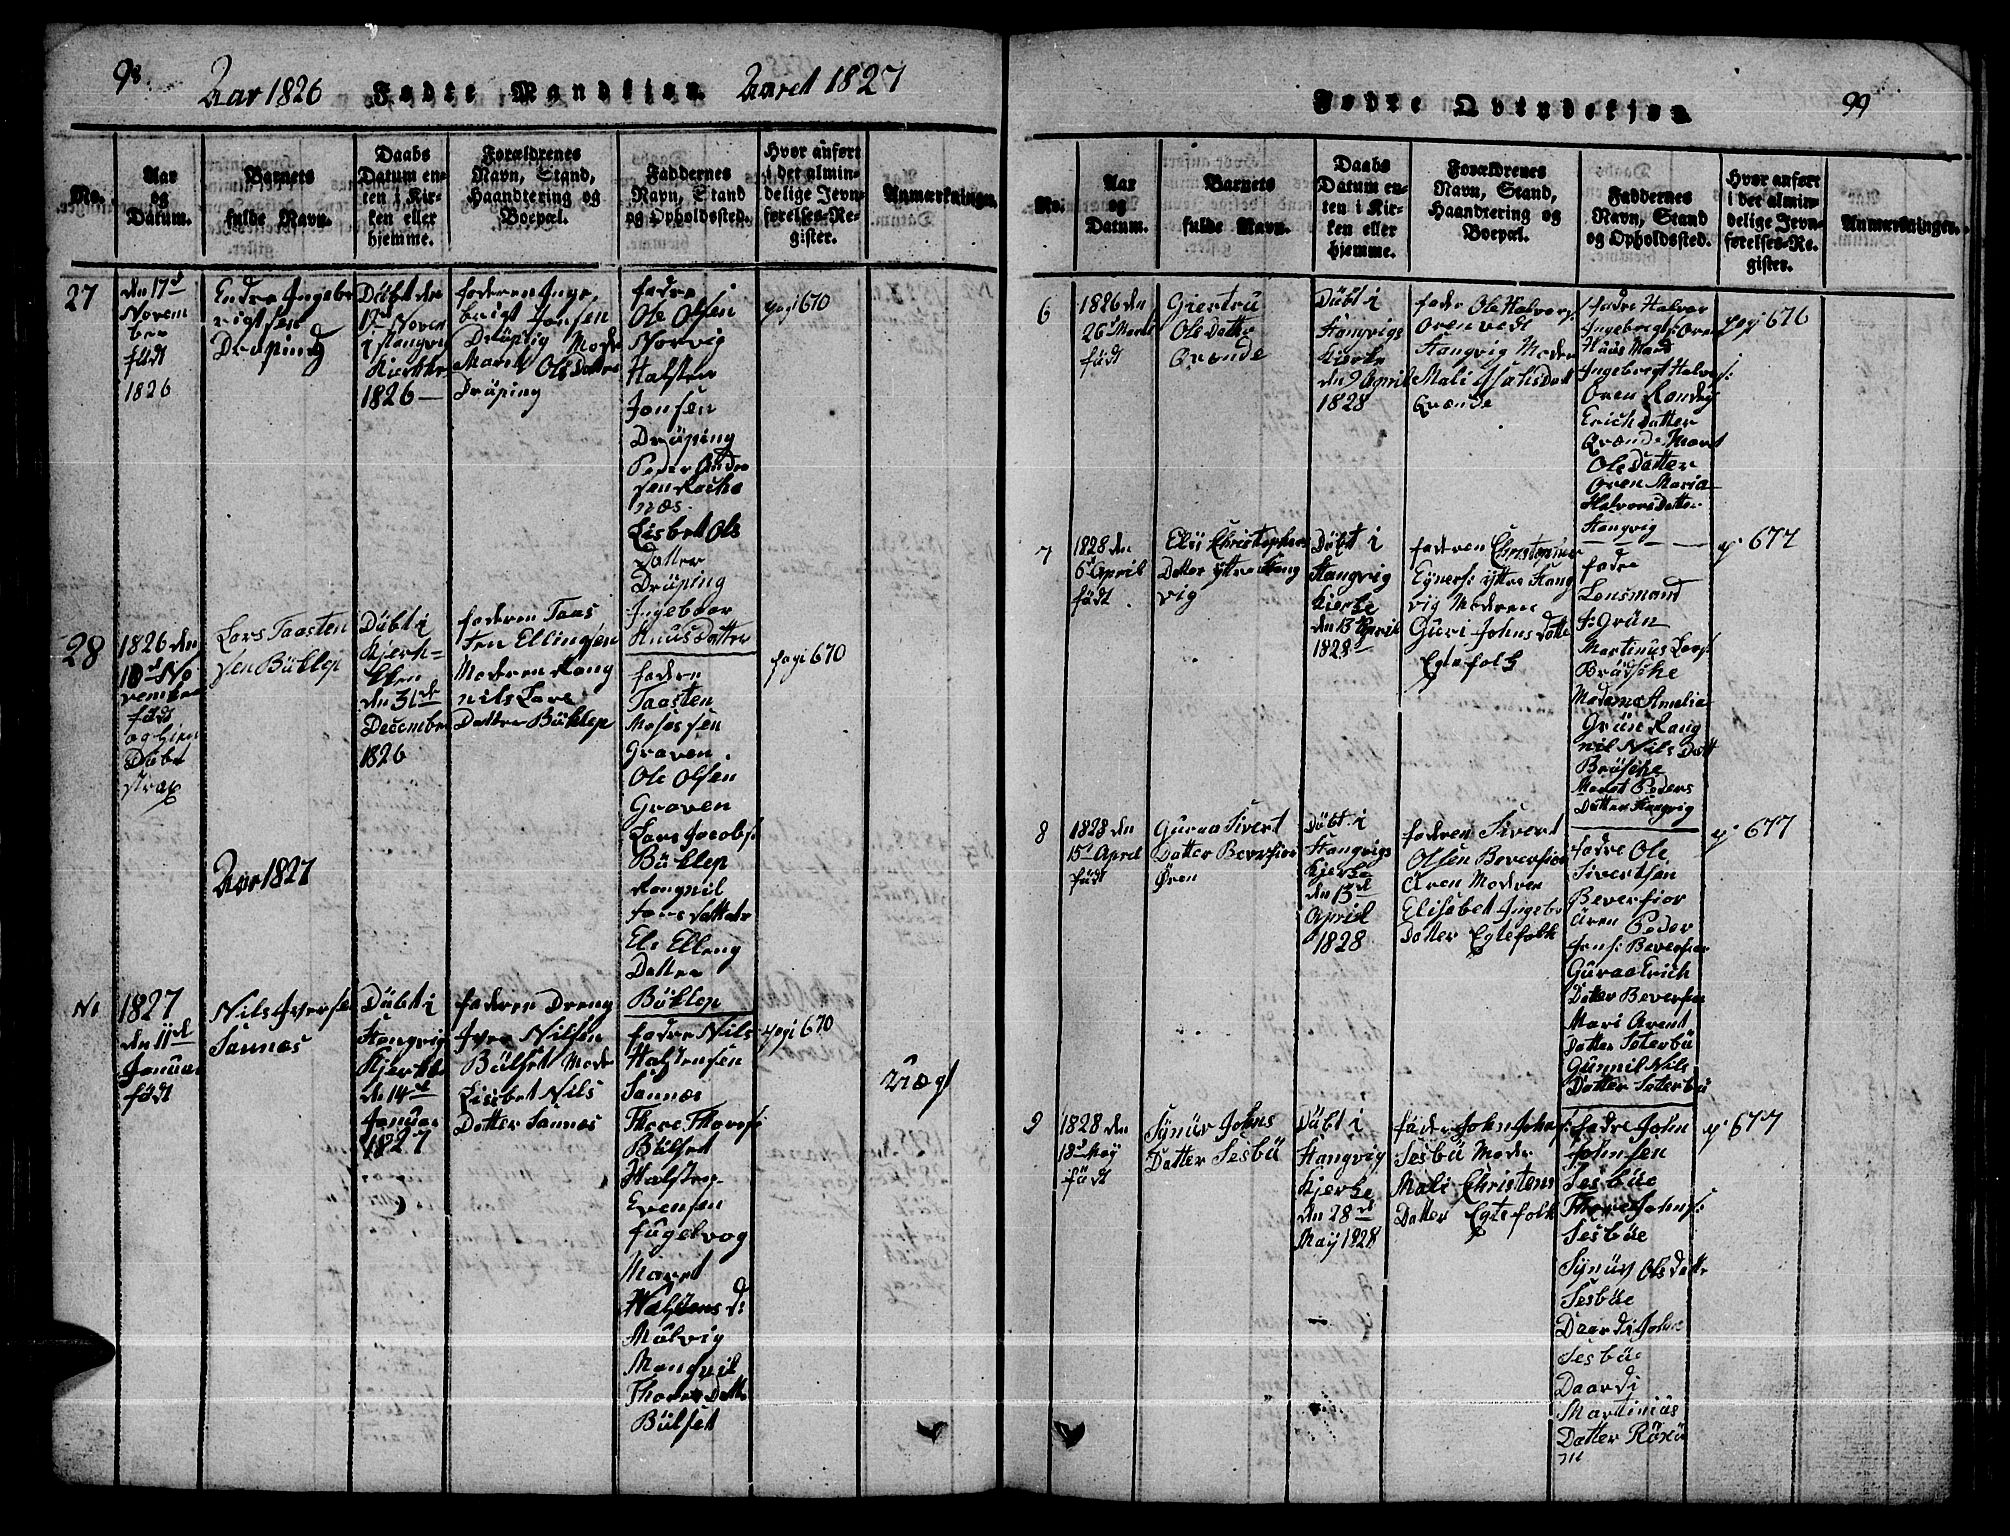 98
Aar 1826 Fødte Mandkjøn. Aaret 1827
No.
Aar
og
Datum.
Barnets
fulde Navn.
Daabs
Datum en-
ten i Kir-
ken eller
hjemme.
Forældrenes
Navn, Stand,
Haandtering og
Boepæl.
Faddernes
Navn, Stand
og Opholdssted.
Hvor anført
i det almin-
delige Jevn-
førelses-Re-
gister.
Anmærkninger.
27
den 17d
Novem
ber
født
1826
Endre Ingebr
rigtsen
Drøping
Døbt den
i Stangvi
1826
faderen Inge
brigt Jonsen
Drøping Mode
Marit Ols Datter
Drøping
fadre
Ole Olsen
Norvig
Halsten
Jonsen
Drøping
Peder Andre
sen
næs
Lisbet Ols
Datter
Drøping
Ingeboor
Knus Datter
pag 670
28
1826 den
10d No
vember
født
og hiem
Døbt
strax
Lars Taasten
sen Bøklep
Døbt i
Kjerk-
ken
den 31de
December
1826
faderen Taas
ten Ellingsen
Moderen Rang
nils Lars
Datter Bøklep
fadre
Taasten
Mosessen
Graven
Ole Olsen
Graven
Lars Jacobs:
Bøklep
Rangnil
Lars Datter
Els Elleng
Datter
Bøklep
pag 670
Aar 1827
N1
1827
den 11d
Januar
født
Nils Iverse
Sannæs
Døbt i
Stangvig
Kjerke
den 14de
Januar
1827
faderen Dreng
Iver Nilsen
Bølset Mode
Lisbet Nils
Datter Sannæs
fadre Nils
Halstensen
Sannæs
Thore Thores:
Bølset
Halsten
Evensen
fugelvog
Maret
Halstens d:
Mølvig
Thores Datt
Bølset
pag 670
Uægt
Fødte Qvindekjøn.
99
No.
Aar
og
Datum.
Barnets
fulde Navn.
Daabs
Datum en-
ten i Kir-
ken eller
hjemme.
Forældrenes
Navn, Stand,
Haandtering og
Boepæl.
Faddernes
Navn, Stand
og Opholdssted.
Hvor anført
i det almin-
delige Jevn-
førelses-Re-
gister.
Anmærkninger.
6
1826 den
26d Marti
født
Giertru
Ols Datter
Qvænde
Døbt i
Stangvigs
Kjerke
den 9 April
1828
fader Ole Halvors:
Oren vedt
Stangvig Moder
Mali Datt
Qvænde
fadre Halvor
Ingebregts: Oren
Huus Mand
Ingebregt Halvers:
Oren Randeg
Erich Datter
Qvænde Maret
Ols Datter
Oren Maria
Halvors Datter
Stangvig
pag 676
7
1828 den
6d April
født
Eli Christophers
Datter yttre Stang
vig
Døbt i
Stangvig
Kjerke
den 13 April
1828
faderen Christopher
Eyners: yttre Stang
vig Moderen
Guri Johns Datte
Egtefolk
fadre
Lensmand
F: Grün
Martinus Lars:
Brøske
Madame Amelia
Grün Rang
nil Nils Datt
Brøske
Maret Peders
Datter Stangvig
p: 677
8
1828 den
15d April
født
Guraa Sivert
Datter Beverfior
Øren
Døbt i
Stangvigs
Kjerke
den 13de
April
1828
faderen Sivert
Olsen Beverfior
Øren Moder
Elisabet Ingebr
Datter Egtefolk
fadre Ole
Sivertsen
Beverfior
Øren Peder
Jens: Beverfior
Guraa Erich
Datter Beverfior
Mari Arent
Datter Seterbø
Gunnil Nils
Datter Seterbø
p: 677
9
1828 den
18d May
født
Synüv Johns
Datter Sesbø
Døbt i
Stangvig
Kjerke
den 28de
May 1828
fader John Johns:
Sesbø Moder
Mali Christens
Datter Egtefolk
fadre John
Johnsen
Sesbøe
Thore Johns:
Sesbøe
Synüv Ols Datte
Sesbøe
Daardi Johns
Sesbøe
Daardi
Martinius
Datter Røxø
m
p: 677